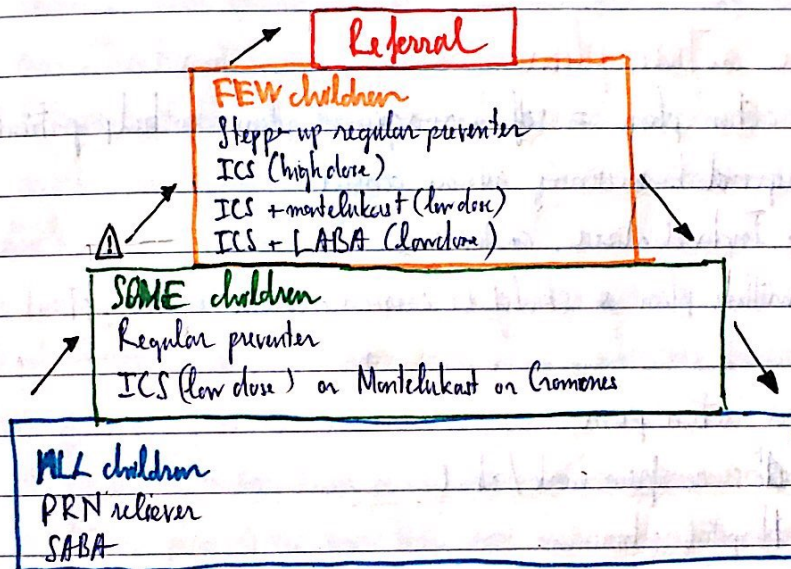 Referral
FEW children
Stepp-up regular preventer
ICS (high dose)
ICS + montelukast (low dose)
ICS + LABA (low dose)
SOME children
Regular preventer
ICS (low dose) or Montelukast or Cromones
ALL children
PRN reliever
SABA